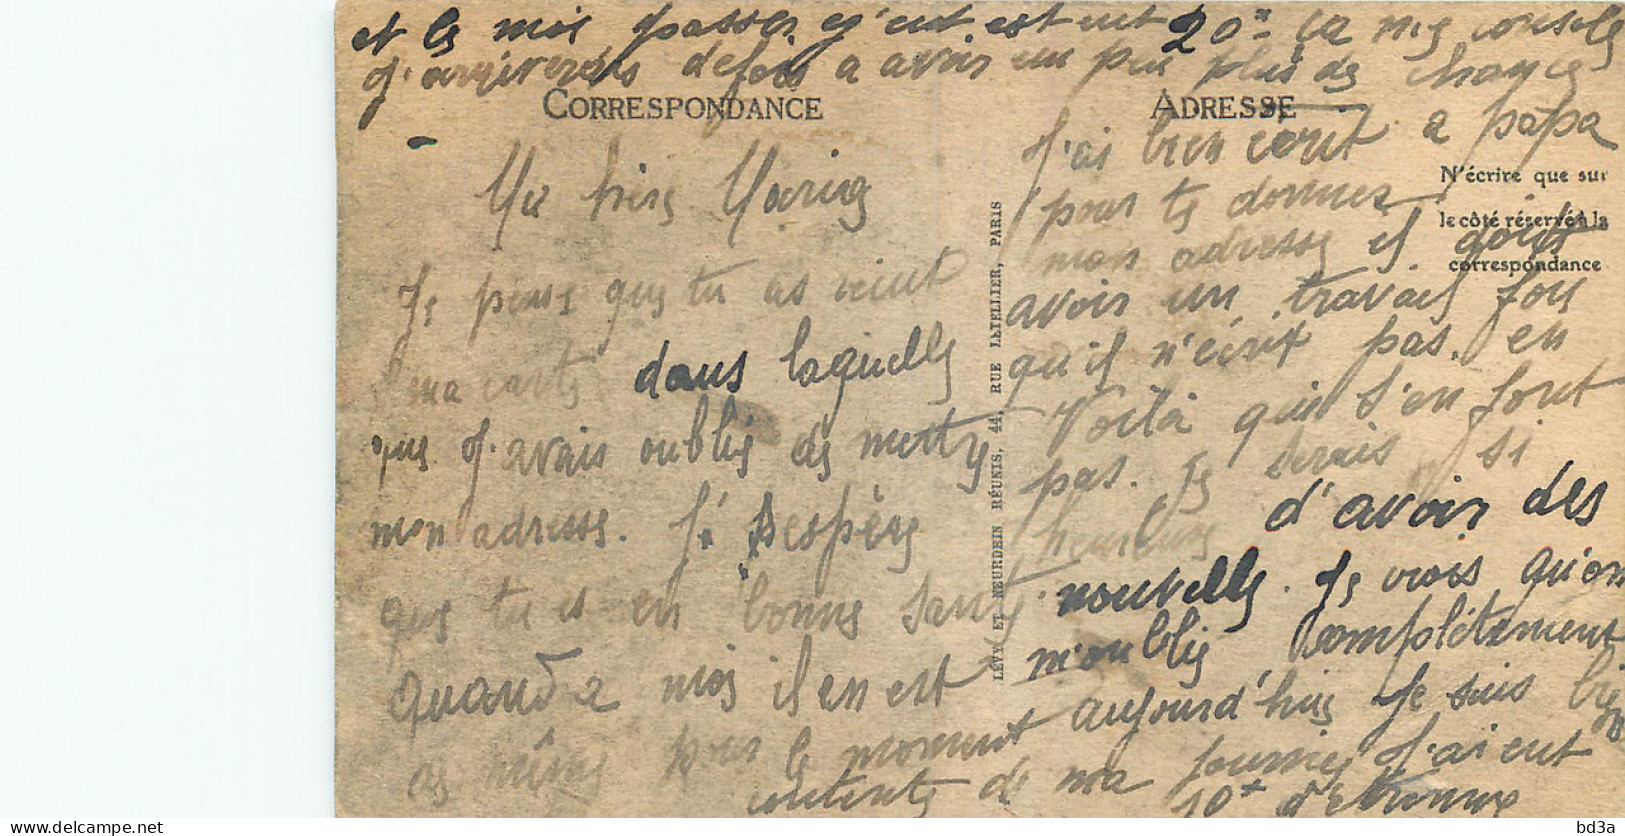 et le moi passer j'ent est eut 20x ca me console
j'arriverais defois a avoir un peu plus de chance
CORRESPONDANCE
Ma chère Marie
Je pense que tu as recut
ma carte dans laquelle
que j'avais oublié de mettre
mon adresse. J'espère
que tu es en bonne santé
quand a moi il en est
de même pour le moment
LÉVY ET NEURDEIN RÉUNIS, 44, RUE LETELLIER, PARIS
ADRESSE
N'écrire que sur
le côté réservé à la
correspondance
J'ai bien écrit a papa
pour te donner
mon adresse et doit
avoir un travail fou
qu'il n'écrit pas. en
Voilà qui s'en font
pas. Je serais si
heureuse d'avoir des
nouvelle. Je vrois qu'on
m'oublie complétement
aujourd'hui Je suis bien
contente de ma journée j'ai eut
10x d'étrenne
bd3a